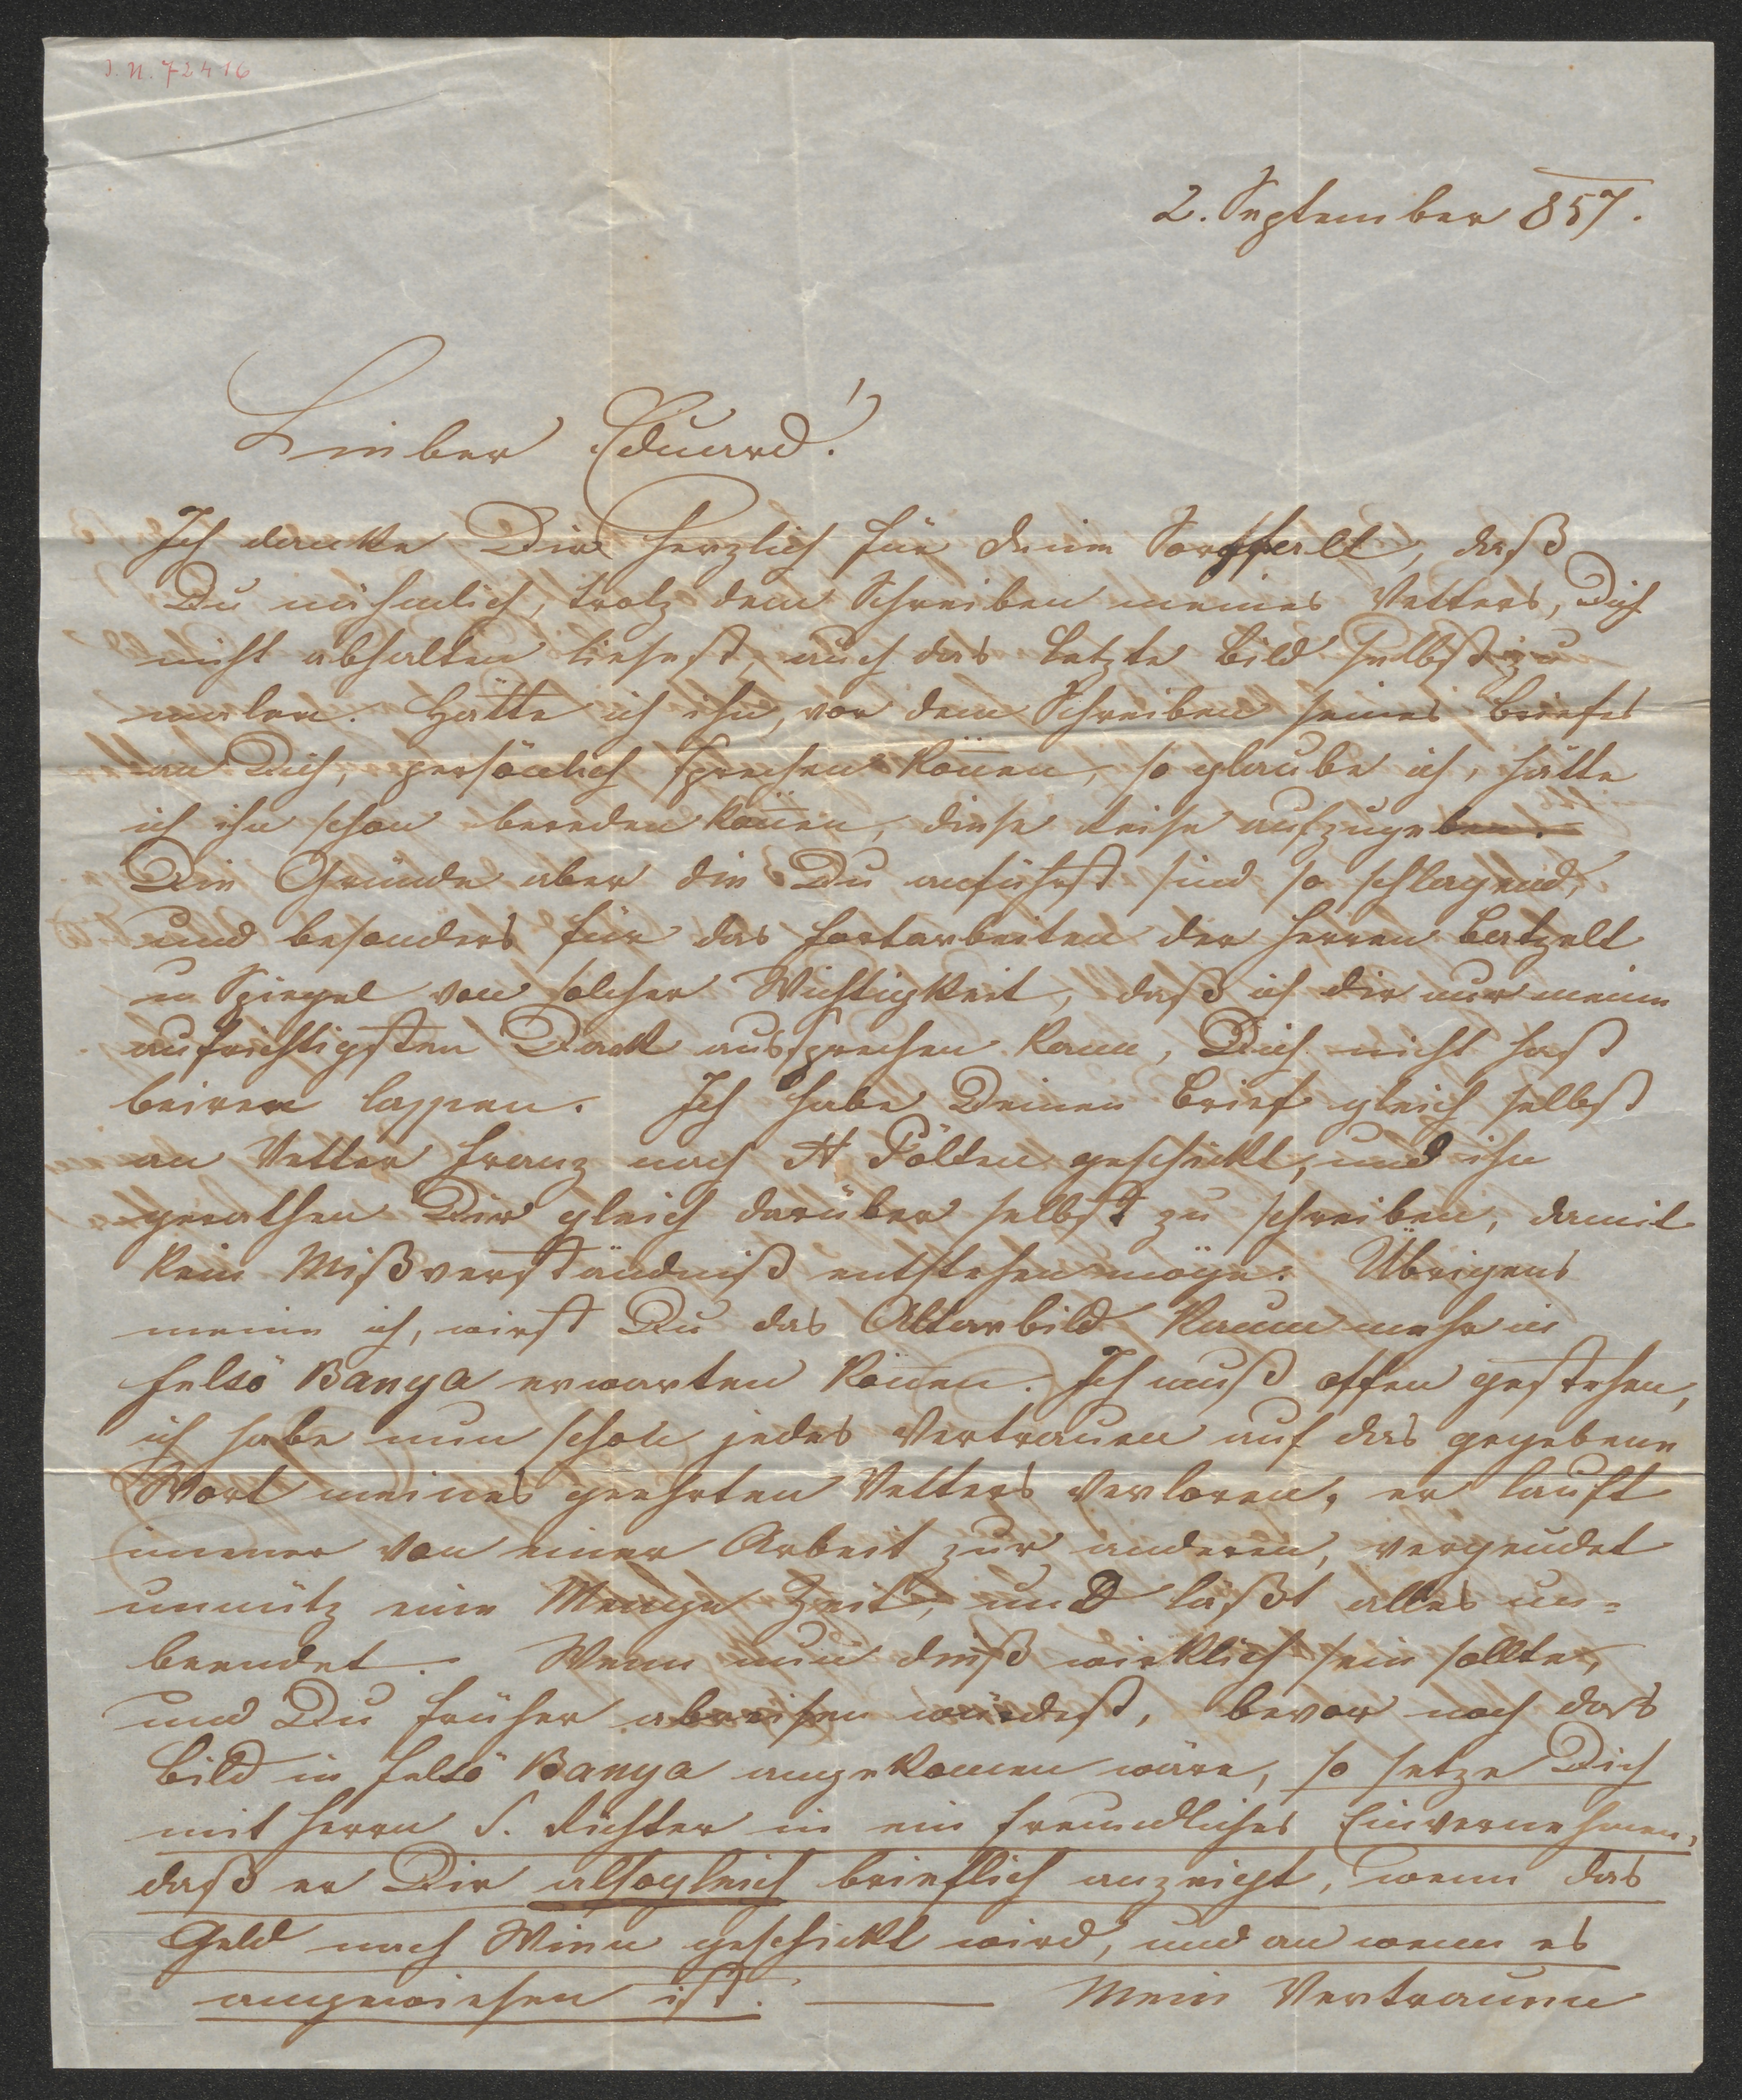 I. N. 72416
2. September 857.
Lieber Eduard!
Ich danke Dir herzlich für deine Sorgfalt, daß
Du nähmlich, trotz dem Schreiben meines Vetters, Dich
nicht abhalten ließest, auch das letzte Bild selbst zu
malen. Hätte ich ihn, vor dem Schreiben seines Briefes
an Dich, persönlich sprechen können, so glaube ich, hätte
ich ihn schon bereden können, diese Reise aufzugeben.
Die Gründe aber die Du anführst sind so schlagend,
und besonders für das Fortarbeiten der Herren Batzelt
u Spiegel von solcher Wichtigkeit, daß ich dir nur meine
aufrichtigsten Dank aussprechen kann, Dich nicht hast
beirren lassen. Ich habe Deinen Brief gleich selbst
an Vetter Franz nach St Pölten geschickt, und ihn
gerathen Dir gleich darüber selbst zu schreiben, damit
kein Mißverständniß entstehen möge. Übrigens
meine ich, wirst Du das Altarbild kaum mehr in
Felsö Banya erwarten können. Ich muß offen gestehen,
ich habe nun schon jedes Vertrauen auf das gegebene
Wort meines geehrten Vetters verloren, er lauft
immer von einer Arbeit zur anderen, vergeudet
unnütz eine Menge Zeit, und läßt alles un=
beendet. Wenn nun dieß wirklich sein sollte,
und Du früher abreisen würdest, bevor noch das
Bild in Felsö Banya angekommen wäre, so setze Dich
mit Herrn S. Richter in ein freundliches Einvernehmen,
daß er Dir alsogleich brieflich anzeigt, wenn das
Geld nach Wien geschickt wird, und an wenn es
angewiesen ist. — Mein Vertrauen